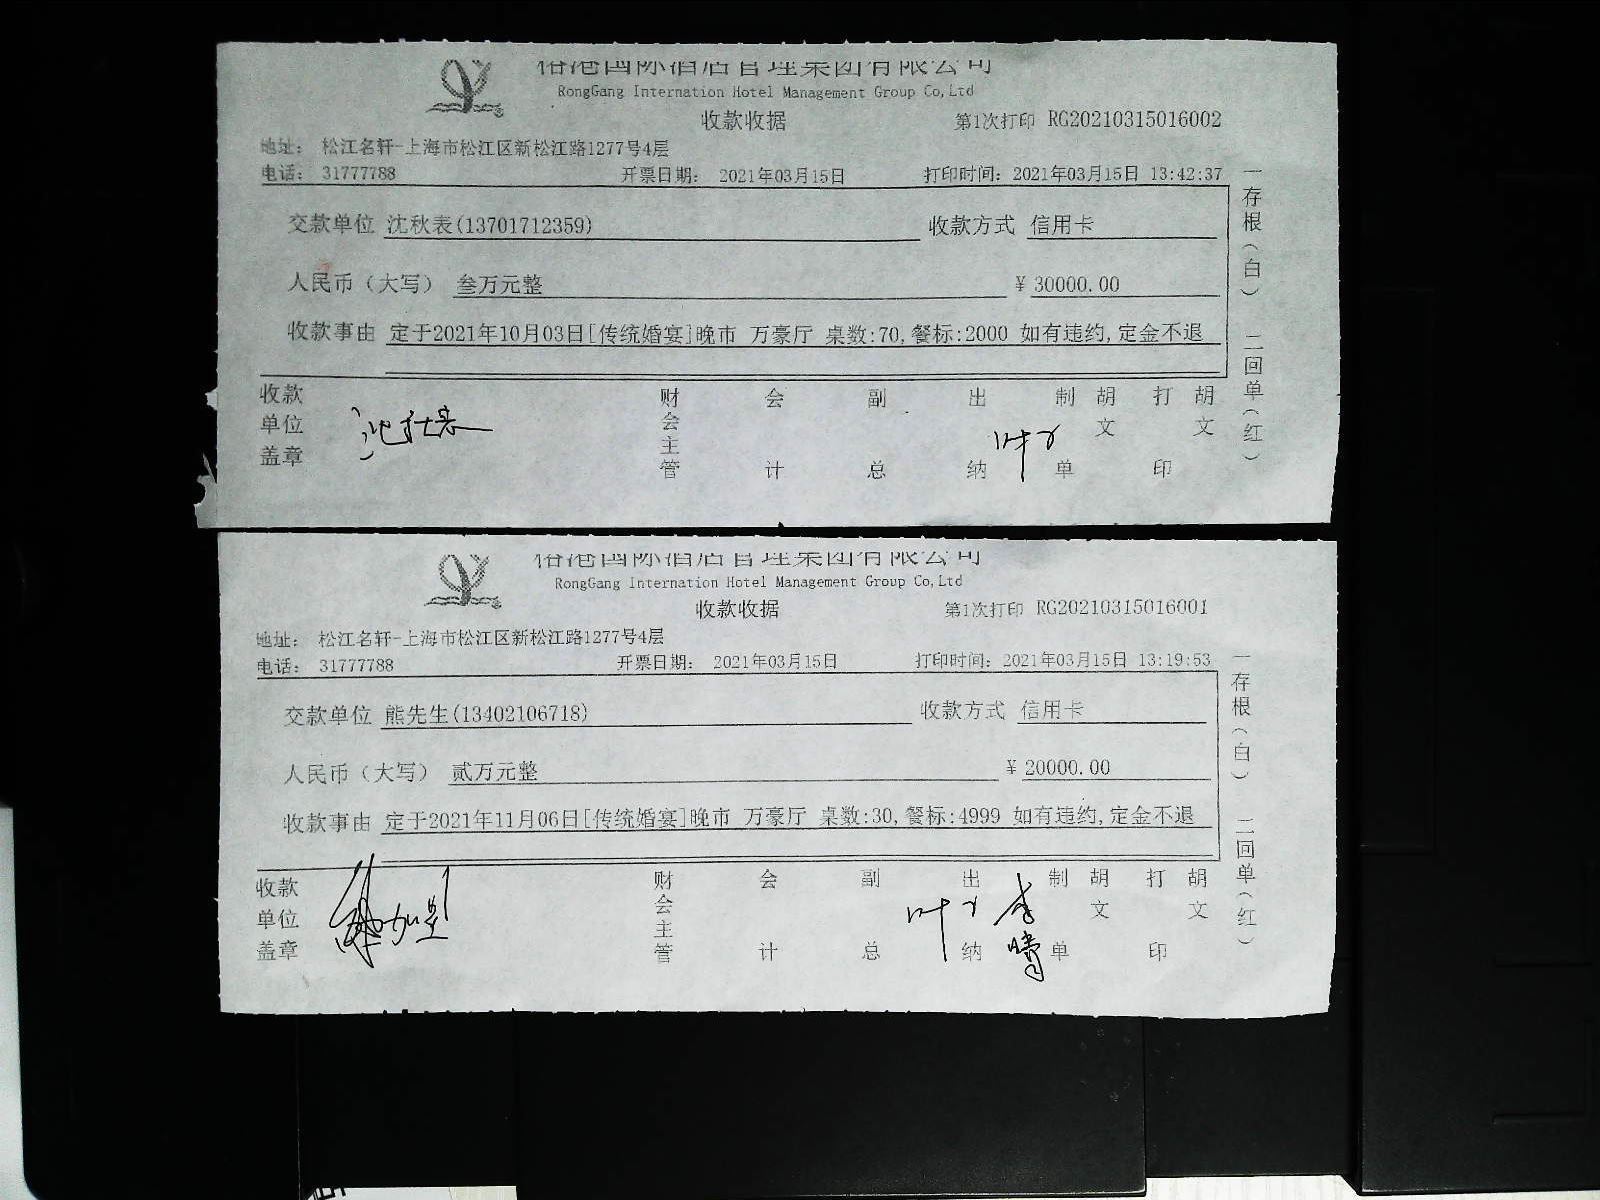 国际酒店管理集团有限公司
RongGang Internation Hotel Management Group Co,Ltd
收款收据
第1次打印 RG20210315016002
地址： 松江名轩-上海市松江区新松江路1277号4层
电话： 31777788 开票日期： 2021年03月15日 打印时间：2021年03月15日 13:42:37
交款单位 沈秋表(13701712359) 收款方式 信用卡
人民币（大写） 叁万元整 ￥30000.00
收款事由 定于2021年10月03日[传统婚宴]晚市 万豪厅 桌数:70,餐标:2000 如有违约,定金不退
收款单位盖章 财会主管 会计 副总 出纳 叶 制单 胡文 打印 胡文
一存根（白） 二回单（红）
国际酒店管理集团有限公司
RongGang Internation Hotel Management Group Co,Ltd
收款收据
第1次打印 RG20210315016001
地址： 松江名轩-上海市松江区新松江路1277号4层
电话： 31777788 开票日期： 2021年03月15日 打印时间：2021年03月15日 13:19:53
交款单位 熊先生(13402106718) 收款方式 信用卡
人民币（大写） 贰万元整 ￥20000.00
收款事由 定于2021年11月06日[传统婚宴]晚市 万豪厅 桌数:30,餐标:4999 如有违约,定金不退
收款单位盖章 财会主管 会计 副总 出纳 叶 李 制单 胡文 打印 胡文
一存根（白） 二回单（红）